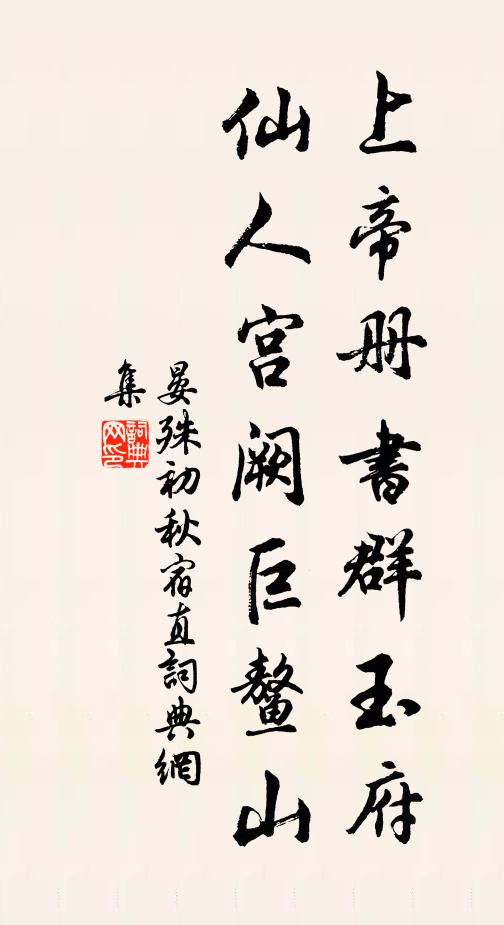 上帝册書群玉府
仙人宫阙巨鳌山
晏殊初秋宿直詞典網
集
詞典
网印